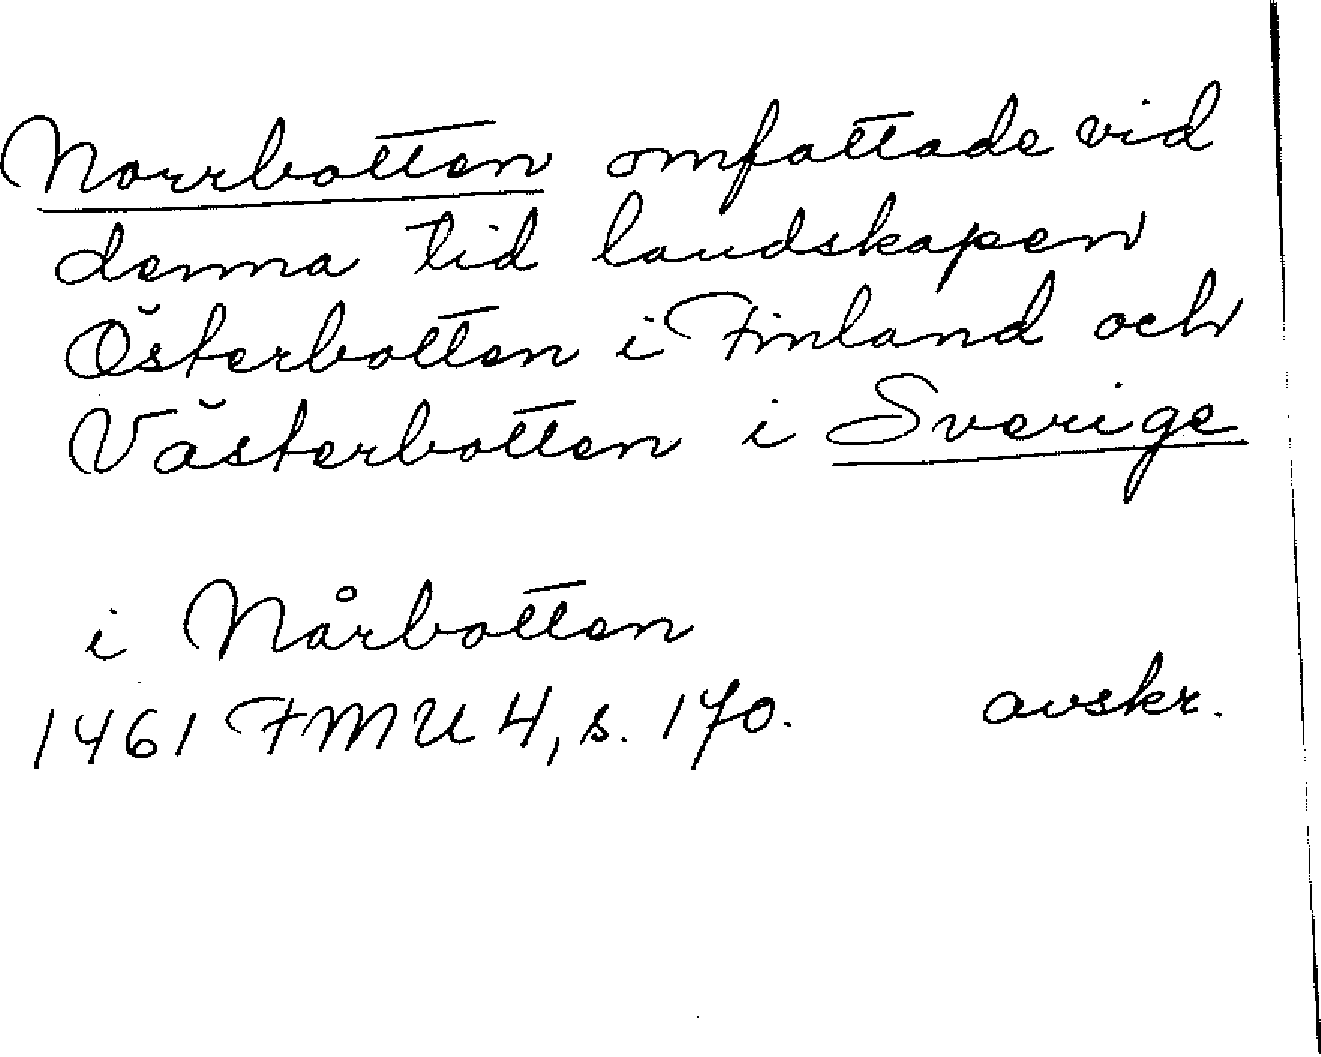 Norrbotten omfattade vid
denna tid landskapen
Österbotten i Finland och
Västerbotten i Sverige
i Nårbotten
1461 FMU 4, s. 170. avskr.